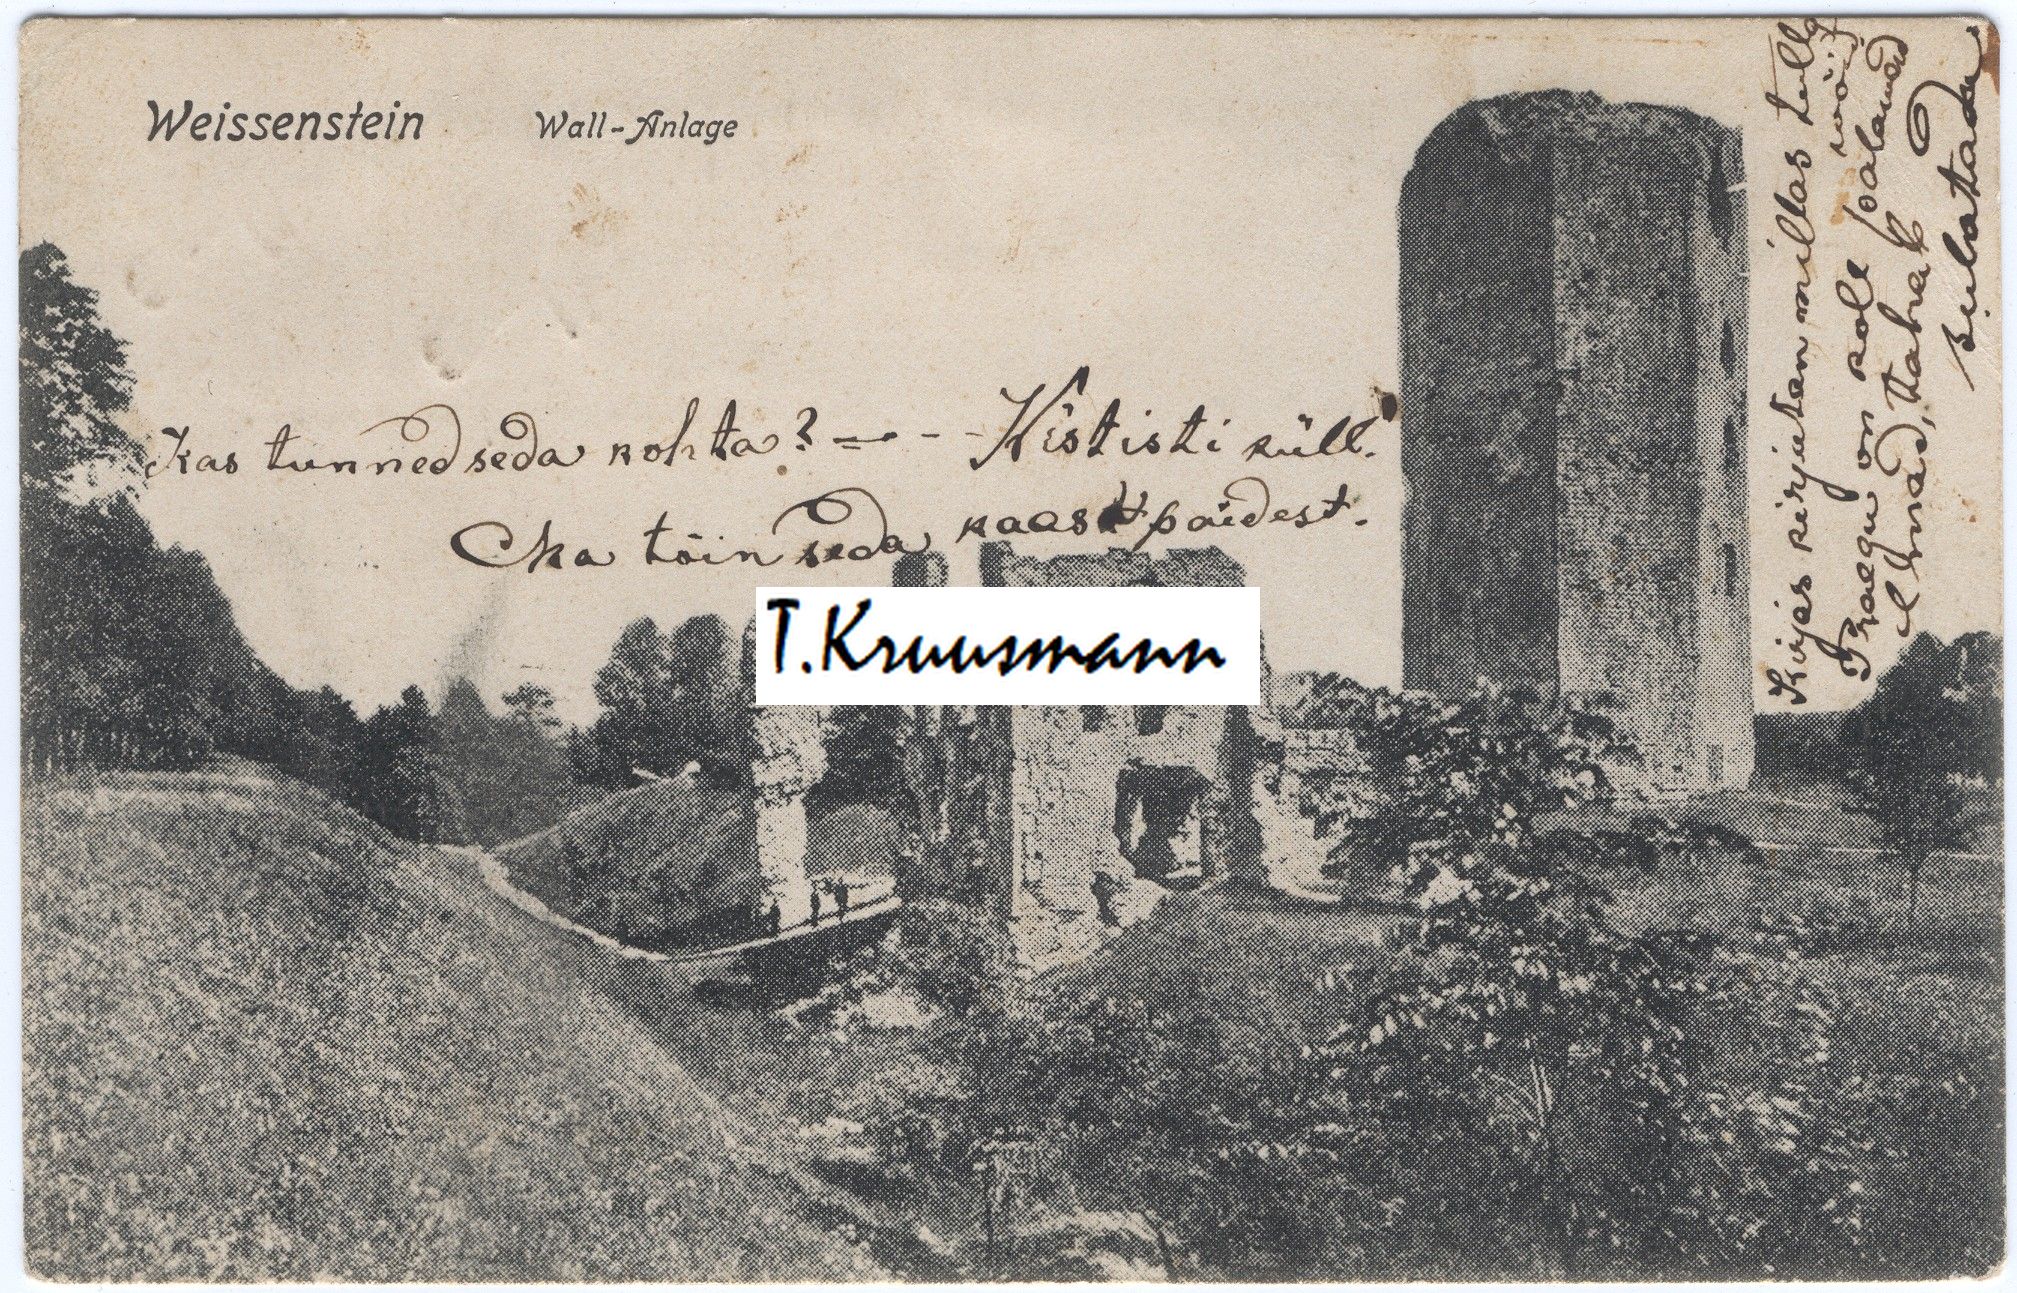 Weissenstein Wall-Anlage
Kas tunned seda kohta? - - Kististi küll.
Ma tõin seda kaast paidest.
T.Kruusmann
Kirjas kirjutan millas tulla
Praegu on kole palawad
ilmad, tahab
sulatada